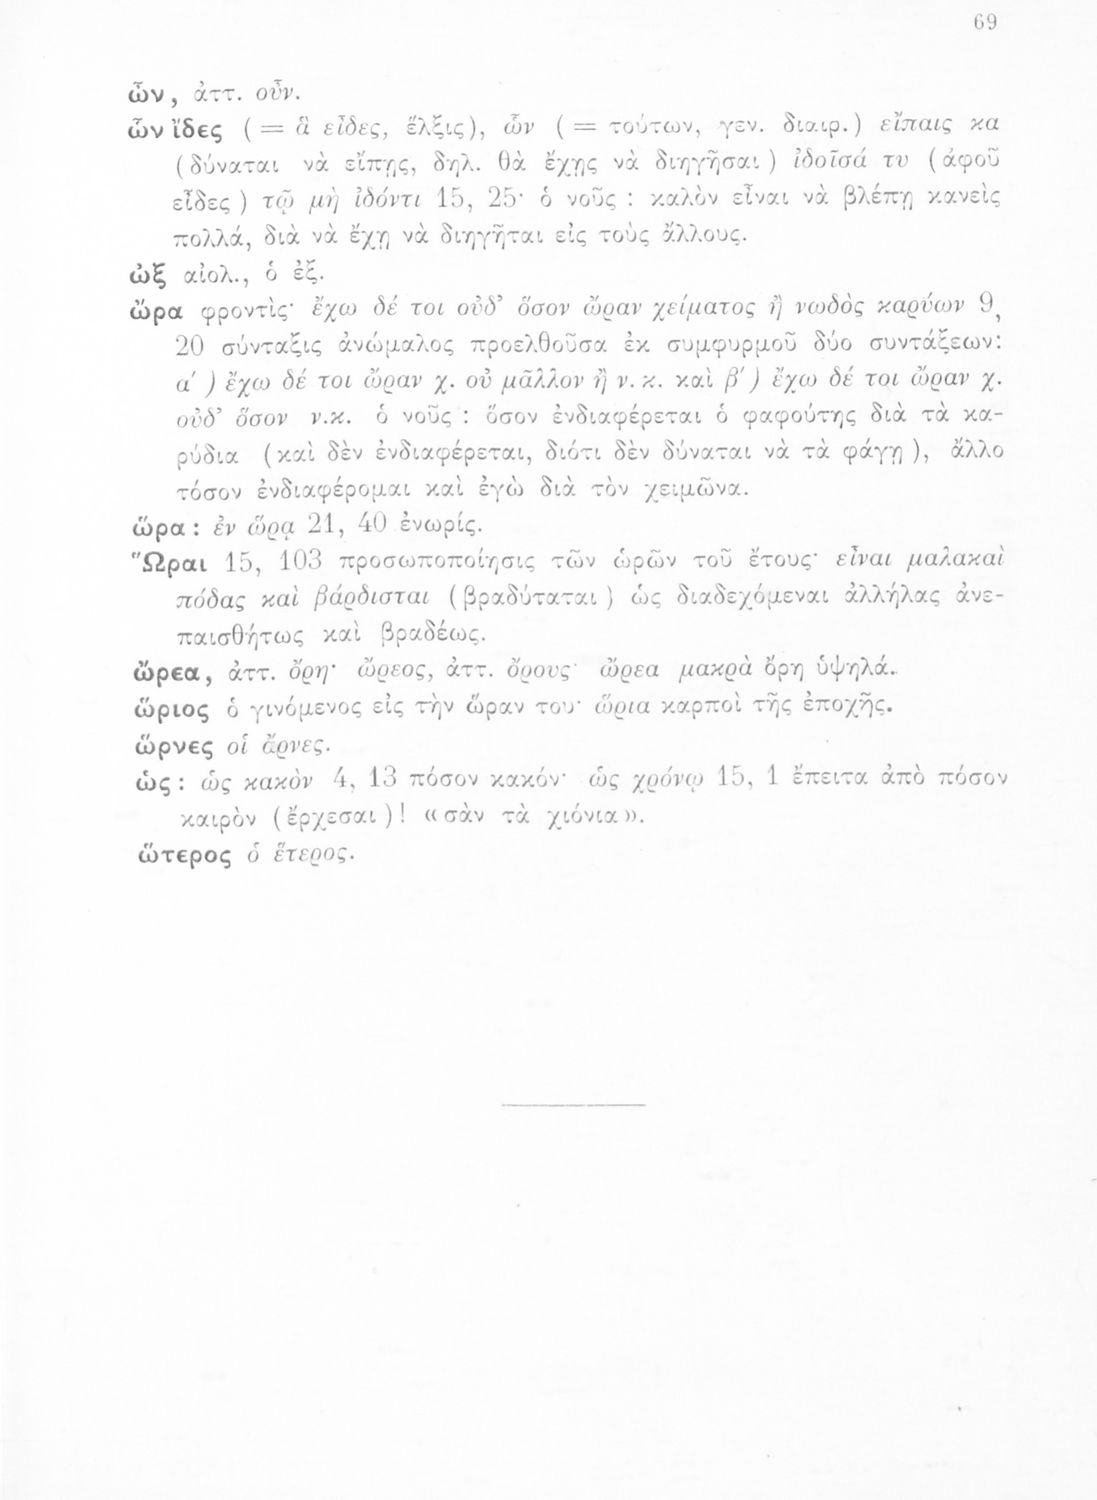 69
ὦν, ἀττ. οὖν.
ὧν ἴδες ( = ἃ εἶδες, ἕλξις), ὧν ( = τούτων, γεν. διαιρ.) εἴπαις κα
(δύναται νὰ εἴπῃς, δηλ. θὰ ἔχῃς νὰ διηγῆσαι ) ἰδοῖσά τυ (ἀφοῦ
εἶδες ) τῷ μὴ ἰδόντι 15, 25· ὁ νοῦς : καλὸν εἶναι νὰ βλέπῃ κανεὶς
πολλά, διὰ νὰ ἔχῃ νὰ διηγῆται εἰς τοὺς ἄλλους.
ὠξ αἰολ., ὁ ἐξ.
ὤρα φροντὶς· ἔχω δέ τοι οὐδ' ὅσον ὤραν χείματος ἢ νωδὸς καρύων 9,
20 σύνταξις ἀνώμαλος προελθοῦσα ἐκ συμφυρμοῦ δύο συντάξεων:
α' ) ἔχω δέ τοι ὤραν χ. οὐ μᾶλλον ἢ ν. κ. καὶ β' ) ἔχω δέ τοι ὤραν χ.
οὐδ' ὅσον ν.κ. ὁ νοῦς : ὅσον ἐνδιαφέρεται ὁ φαφούτης διὰ τὰ κα-
ρύδια (καὶ δὲν ἐνδιαφέρεται, διότι δὲν δύναται νὰ τὰ φάγῃ ), ἄλλο
τόσον ἐνδιαφέρομαι καὶ ἐγὼ διὰ τὸν χειμῶνα.
ὥρα : ἐν ὥρᾳ 21, 40 ἐνωρίς.
Ὧραι 15, 103 προσωποποίησις τῶν ὡρῶν τοῦ ἔτους· εἶναι μαλακαὶ
πόδας καὶ βάρδισται (βραδύταται ) ὡς διαδεχόμεναι ἀλλήλας ἀνε-
παισθήτως καὶ βραδέως.
ὤρεα, ἀττ. ὄρη· ὤρεος, ἀττ. ὄρους· ὤρεα μακρὰ ὄρη ὑψηλά.
ὥριος ὁ γινόμενος εἰς τὴν ὥραν του· ὥρια καρποὶ τῆς ἐποχῆς.
ὥρνες οἱ ἄρνες.
ὡς : ὡς κακὸν 4, 13 πόσον κακόν· ὡς χρόνῳ 15, 1 ἔπειτα ἀπὸ πόσον
καιρὸν (ἔρχεσαι )! «σὰν τὰ χιόνια».
ὥτερος ὁ ἕτερος.